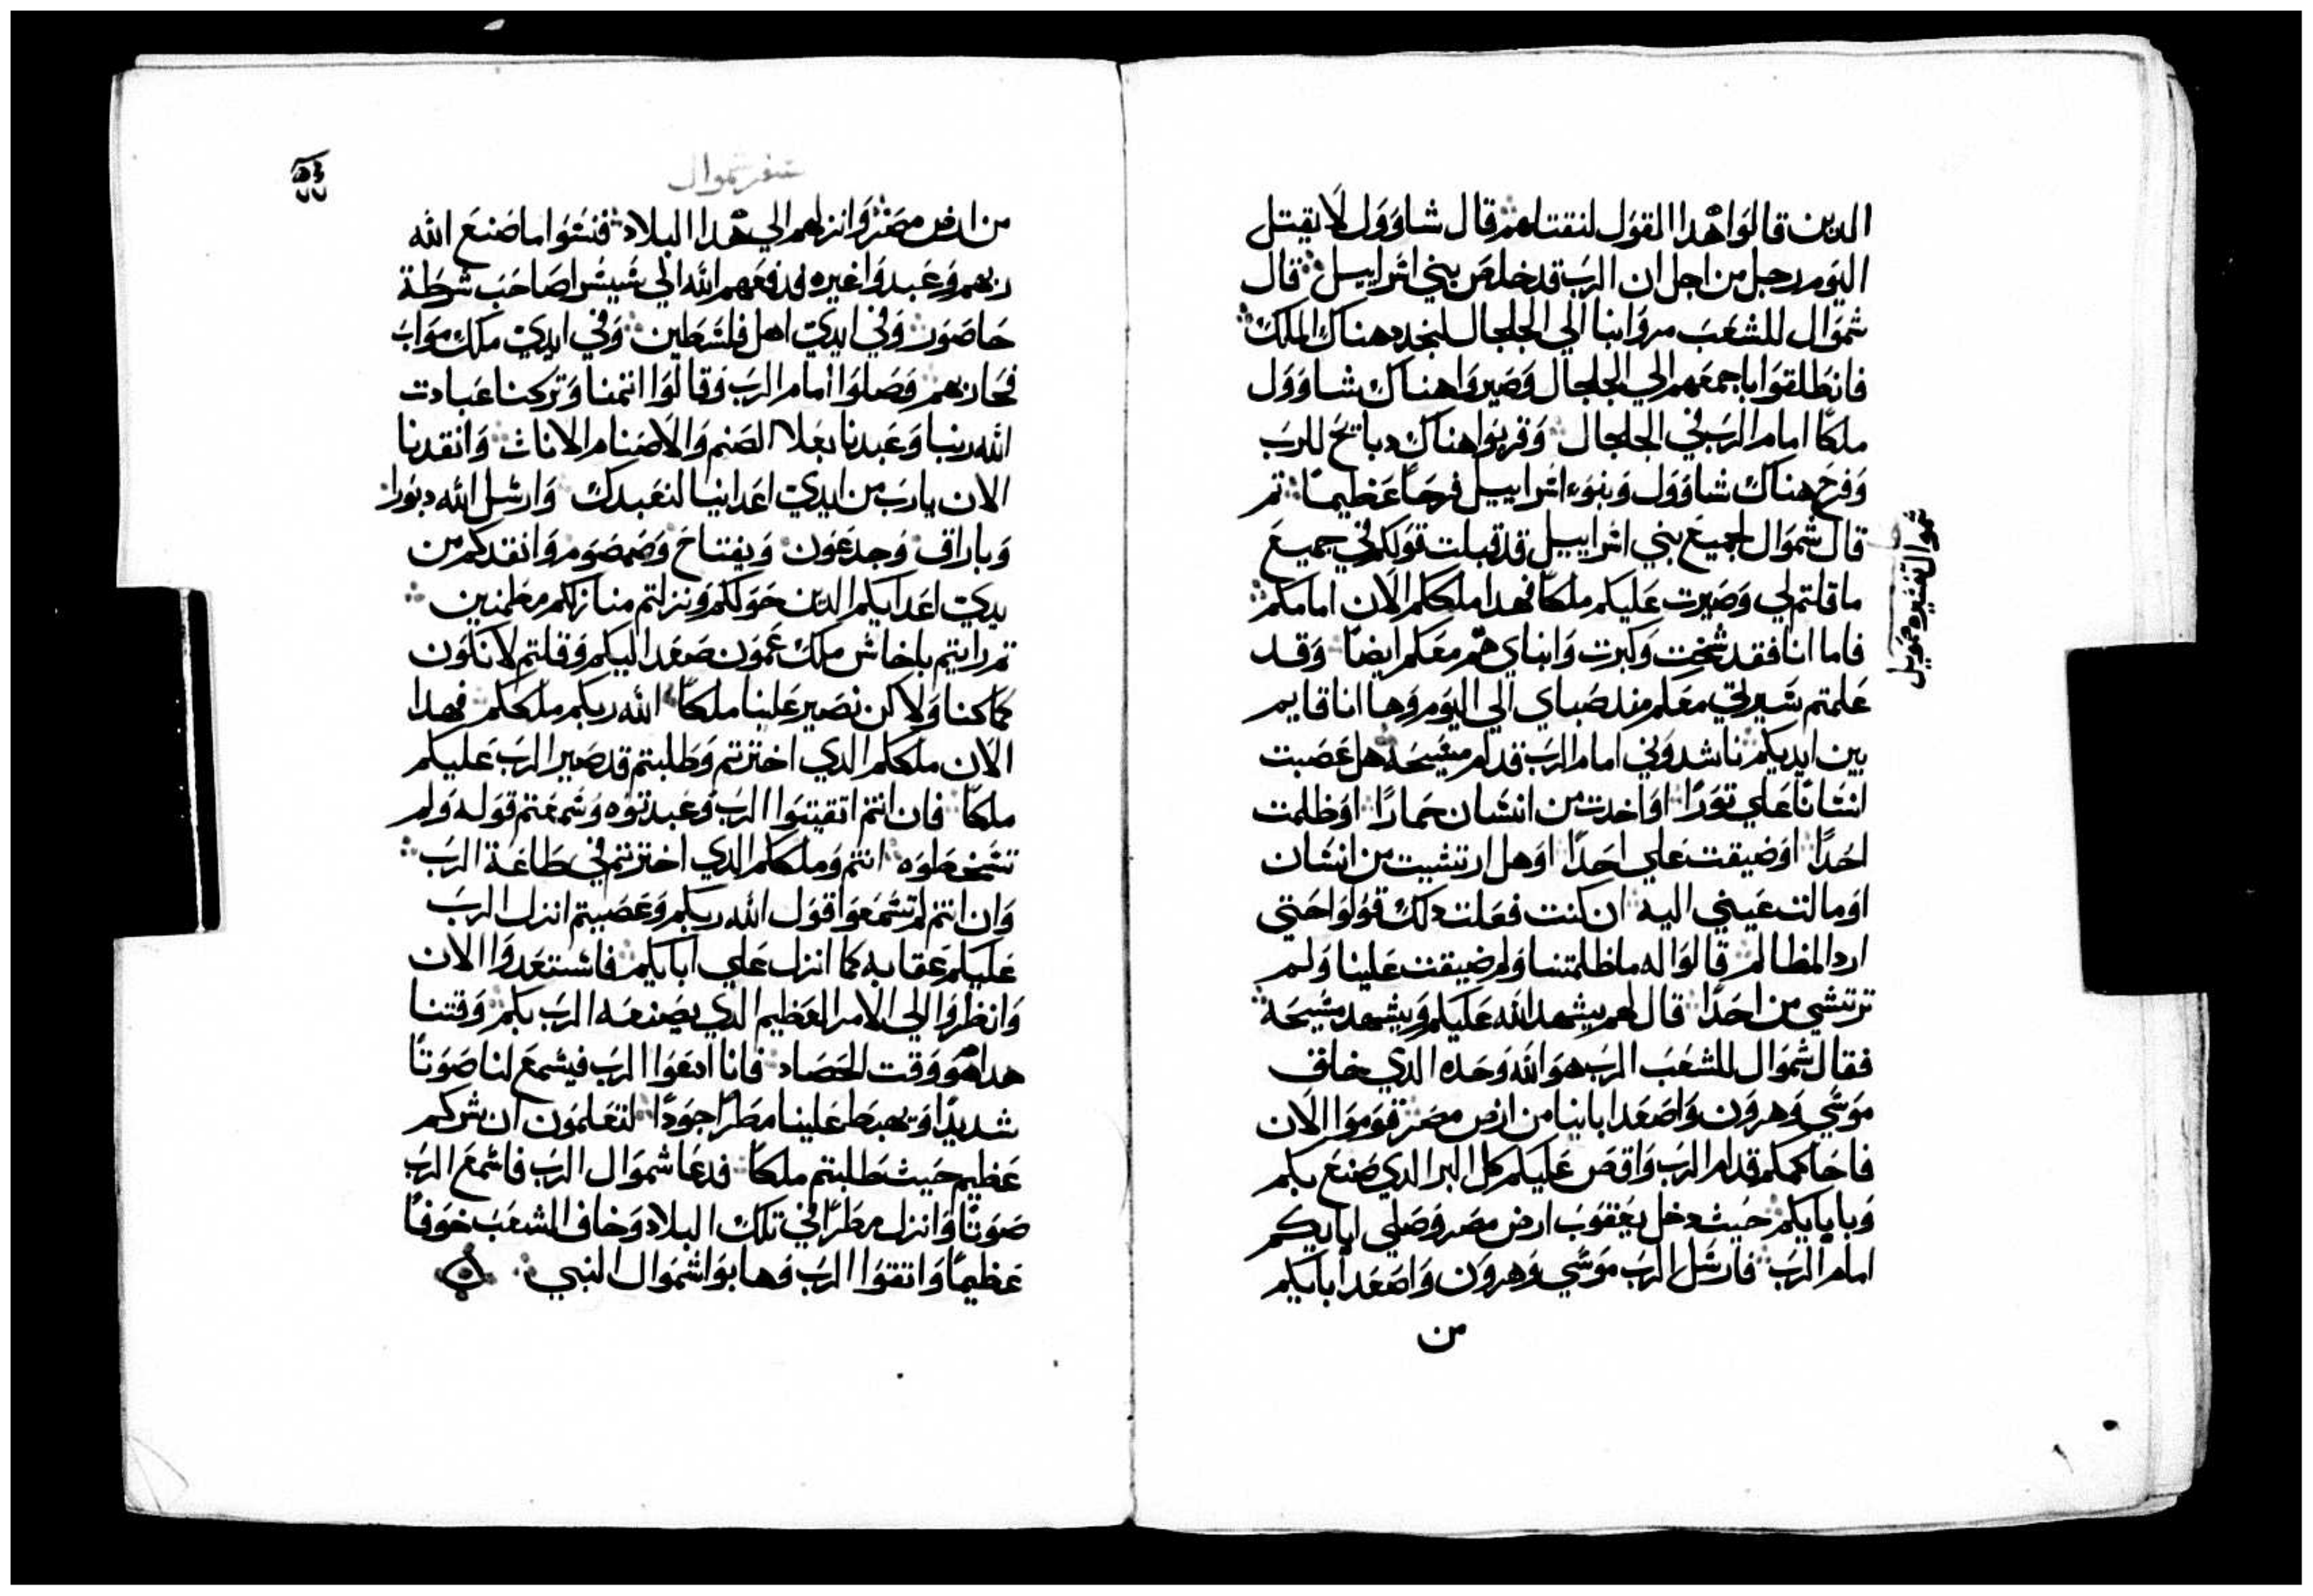 الدين قالوا هدا القول لنقتلهم قال شاوول لا يقتل
اليوم رجل من اجل ان الرب قد خلص بني اسراييل قال
شموال للشعب مروا بنا الي الجلجال لنجدد هناك الملك
فانطلقوا باجمعهم الي الجلجال وصيروا هناك شاوول
ملكًا امام الرب في الجلجال وقربوا هناك دبايح للرب
وفرح هناك شاوول وبنوء اسراييل فرحًا عظيمًا تم
قال شموال لجميع بني اسراييل قد قبلت قولكم في جميع
ما قلتم لي وصيرت عليكم ملكًا فهدا ملككم الان امامكم
فاما انا فقد شخت وكبرت وابناي هم معكم ايضًا وقد
علمتم سيرتي معكم مند صباي الي اليوم وها انا قايم
بين ايديكم ناشدوني امام الرب قدام مسيحه هل غصبت
انسانًا علي تورًا او اخدت من انسان حمارًا او ظلمت
احدًا او ضيقت علي احدًا او هل ارتشيت من انسان
او مالت عيني اليه ان كنت فعلت دلك قولوا حتي
ارد المظالم قالوا له ما ظلمتنا ولم ضيقت علينا ولم
ترتشي من احدًا قال لهم يشهد الله عليكم ويشهد مسيحه
فقال شموال للشعب الرب هو الله وحده الدي خلق
موسي وهرون واصعد ابانيا من ارض مصر قوموا الان
فاحاكمكم قدام الرب واقص عليكم كل البر الدي صنع بكم
وبابايكم حيث دخل يعقوب ارض مصر وصلي ابايكم
امام الرب فارسل الرب موسي وهرون واصعد ابايكم
من
شموال تفسيره صمويل
سفر شموال
من ارض مصر وانزلهم الي هدا البلاد فنسوا ما صنع الله
ربهم وعبدوا غيره فدفعهم الله الي سيسرا صاحب شرطة
حاصور وفي ايدي اهل فلسطين وفي ايدي ملك مواب
فحاربهم وصلوا امام الرب وقالوا اتمنا وتركنا عبادت
الله ربنا وعبدنا بعلا الصنم والاصنام الاناث وانقدنا
الان يارب من ايدي اعداينا لنعبدك وارسل الله دبورا
وباراق وجدعون ويفتاح وصمصوم وانقدكم من
يدي اعدايكم الدين حولكم ونزلتم منازلكم مطمنين
تم رايتم باخاش ملك عمون صعد اليكم وقلتم لا نكون
كما كنا ولاكن نصير علينا ملكًا الله ربكم ملككم فهدا
الان ملككم الدي اخترتم وطلبتم قد صير الرب عليكم
ملكًا فان انتم اتقيتوا الرب وعبدتوه وسمعتم قوله ولم
تسخطوه انتم وملككم الدي اخترتم في طاعة الرب
وان انتم لم تسمعوا قول الله ربكم وعصيتم انزل الرب
عليكم عقابه كما انزل علي ابايكم فاستعدوا الان
وانظروا الي الامر العظيم الدي يصنعه الرب بكم وقتنا
هدا هو وقت الحصاد فانا ادعوا الرب فيسمع لنا صوتًا
شديدًا ويهبط علينا مطرًا جودًا لتعلمون ان شركم
عظيم حيث طلبتم ملكًا فدعا شموال الرب فاسمع الرب
صوتًا وانزل مطرًا في تلك البلاد وخاف الشعب خوفًا
عظيمًا واتقوا الرب وهابوا شموال النبي